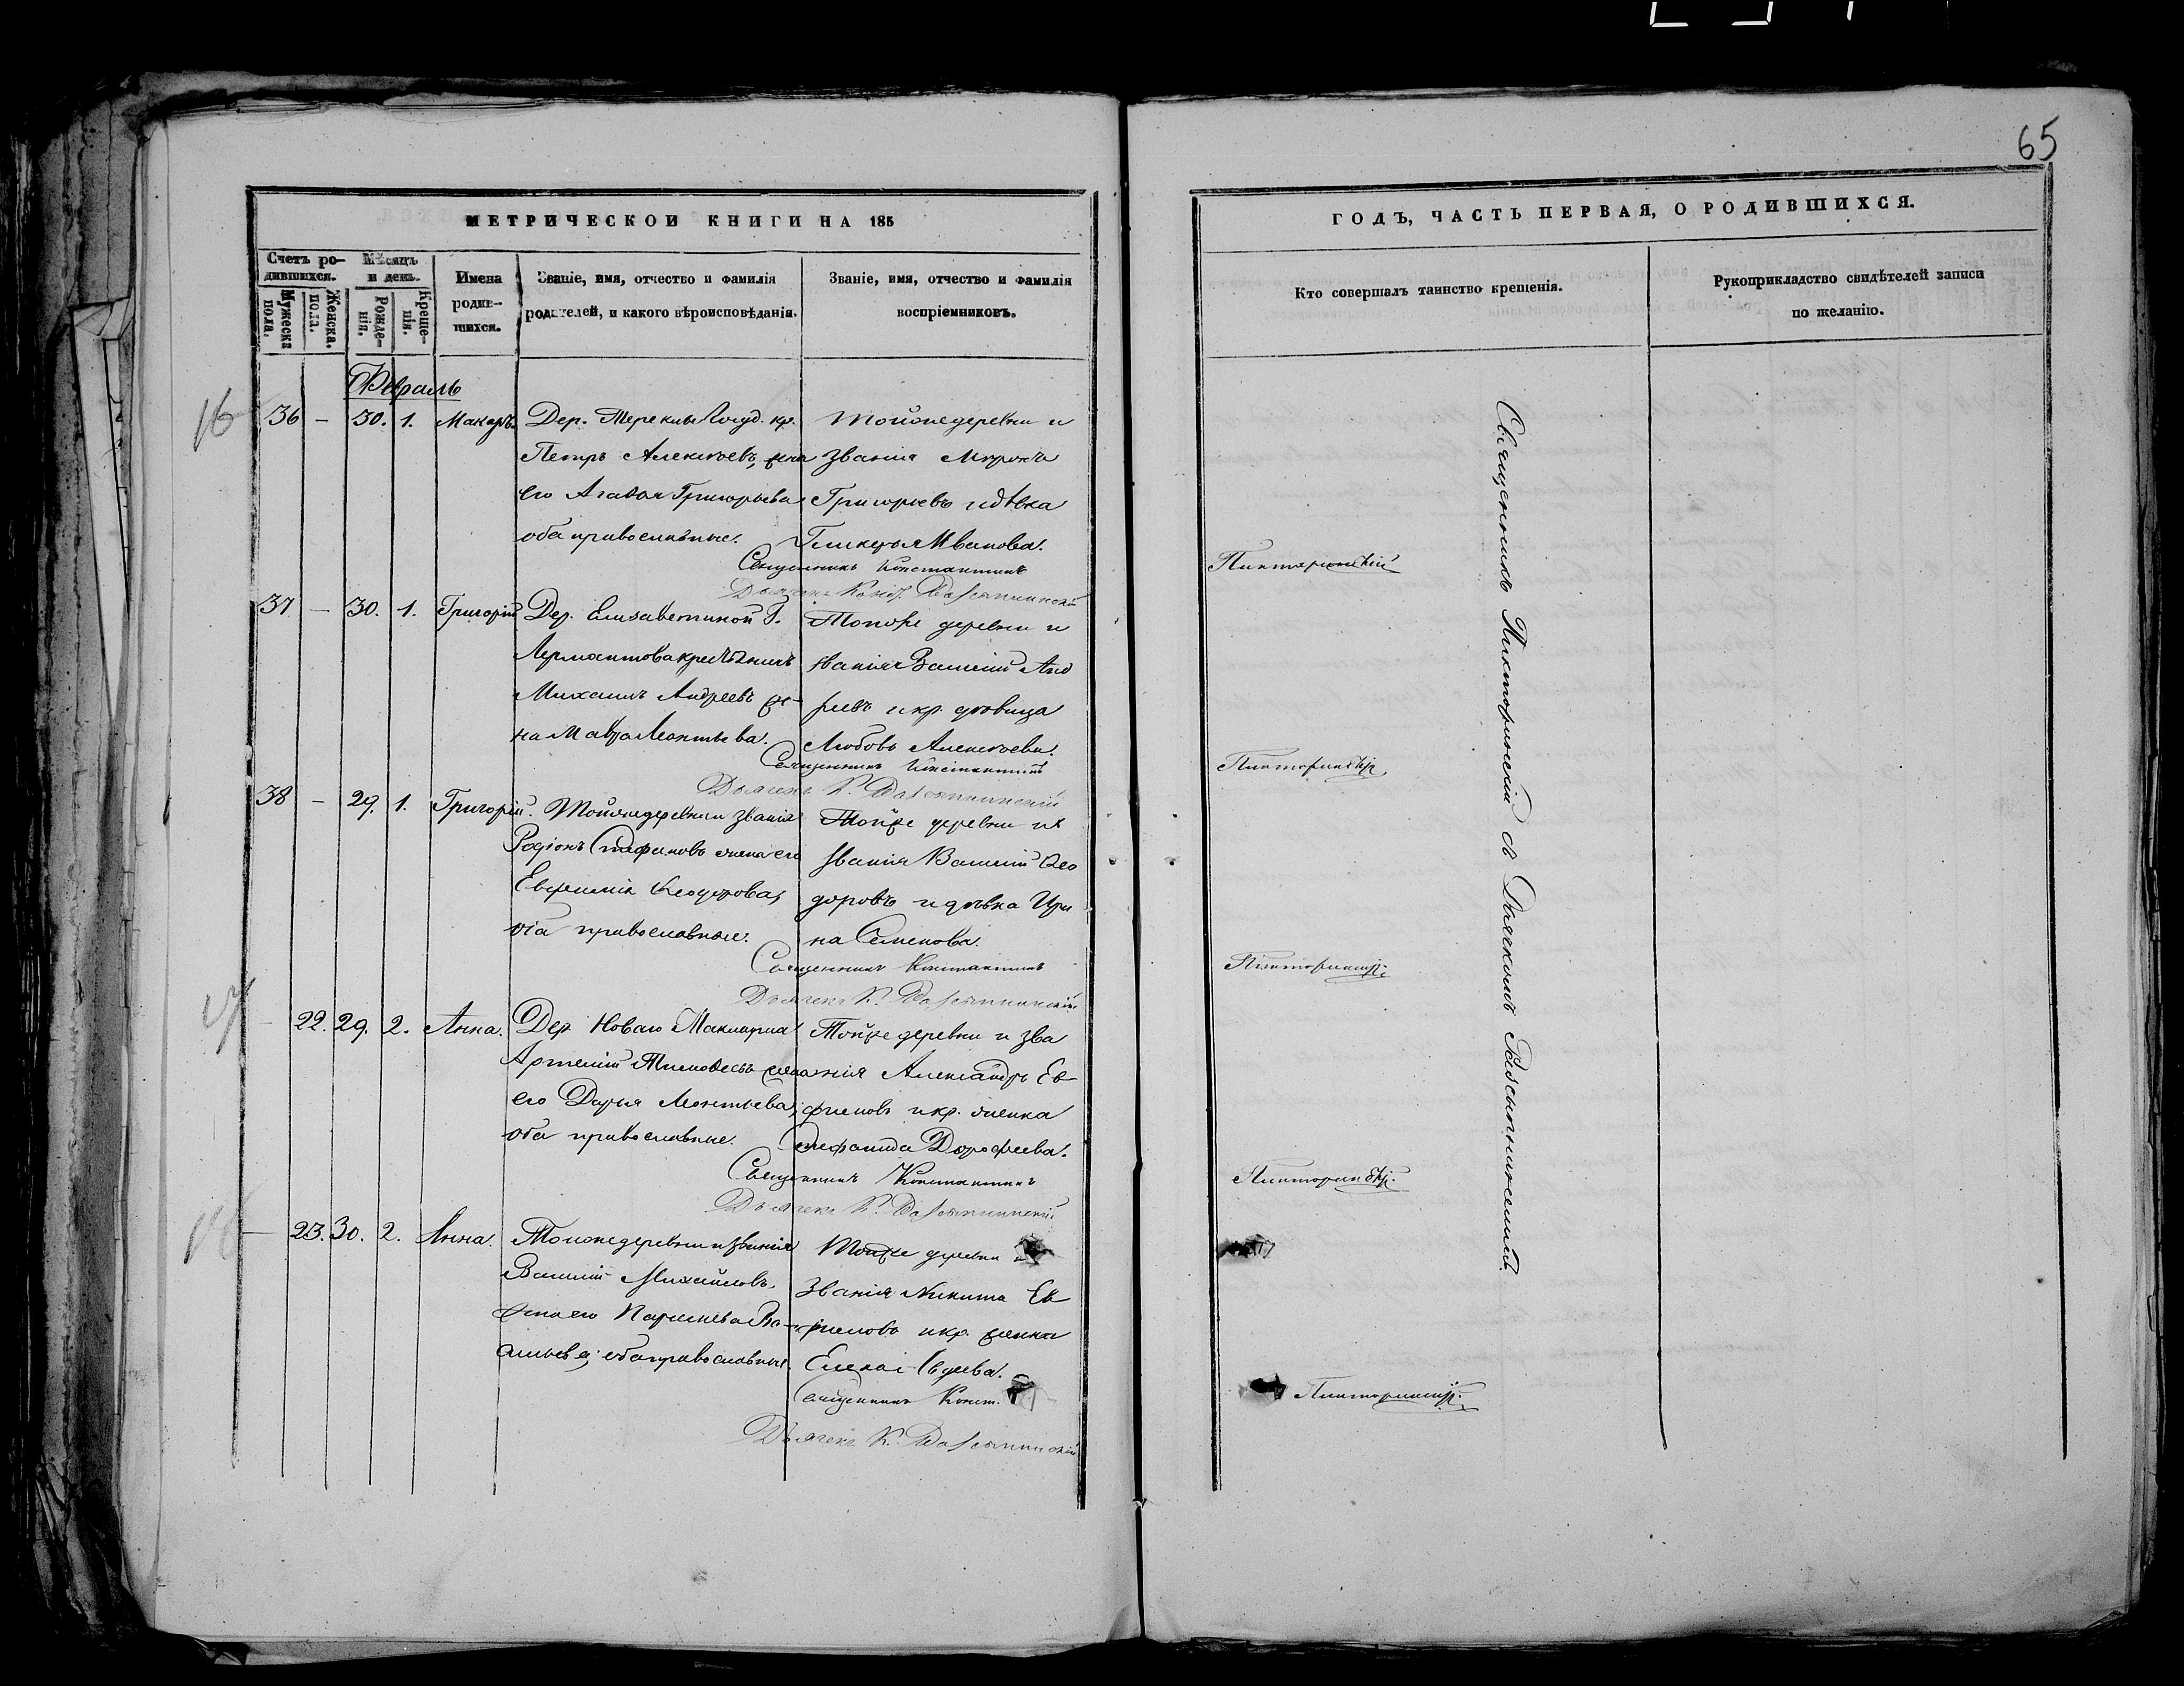 65
МЕТРИЧЕСКОЙ КНИГИ НА 185
ГОДЪ, ЧАСТЬ ПЕРВАЯ, О РОДИВШИХСЯ.
Счетъ родившихся.
Мужеска пола.
Женска. пола.
Мѣсяцъ и день.
Рожденія.
Крещенія.
Имена родившихся.
Званіе, имя, отчество и фамилія
родителей, и какого вѣроисповѣданія.
Званіе, имя, отчество и фамилія
воспріемниковъ.
Кто совершалъ таинство крещенія.
Рукоприкладство свидѣтелей записи
по желанію.
Февраль
16
36 – 30. 1. Макаръ.
Дер. Терекли Госуд. кр.
Петръ Алексѣевъ, жена
его Агафья Григорьева
оба православные.
Тойже деревни и
званія Миронъ
Григорьевъ и дѣвка
Гликерья Иванова.
Священникъ Константинъ
Дьячекъ Конст.
37 – 30. 1. Григорій
Дер. Елисаветиной Г.
Лермонтова крестьянинъ
Михаилъ Андреевъ же-
на Мавра Леонтьева.
Тойже деревни и
званія Василій Анд
реевъ и кр. дѣвица
Любовь Алексѣева.
Священникъ Константинъ
Дьячекъ К.
38 – 29. 1. Григорій.
Тойже деревни и званія
Родіонъ Стефановъ жена его
Евфимія Ѳеодорова,
оба православные.
Тойже деревни и
званія Василій Ѳео
доровъ и дѣвка Ири
на Семенова.
Священникъ Константинъ
Дьячекъ К.
17
22. 29. 2. Анна.
Дер. Новаго
Артемій Тимоѳеевъ жена
его Дарья Леонтьева,
оба православные.
Тойже деревни и зва
нія Александръ Ев
фимовъ и кр. женка
Дорофеева.
Священникъ Константинъ
Дьячекъ К.
23. 30. 2. Анна.
Тойже деревни и званія
Василій Михайловъ
жена его Параскева Ва-
сильева; оба православные
Тойже деревни и
званія Никита Ев
фимовъ и кр. женка
Священникъ Конст.
Дьячекъ К.
Священникъ Пикторинскій съ Дьячкомъ